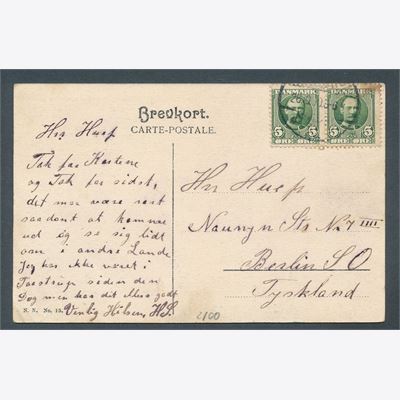 DANMARK DANMARK
5 5 5 5
ØRE ØRE ØRE ØRE
Brevkort.
CARTE-POSTALE.
Hrr Huep
Tak for Kortene
og Tak for sidst,
det maa være rart
saadant at komme
ud og se sig lidt
om i andre Lande
Jeg har ikke været i
Taastrup siden den
Dag men har det ellers godt
Venlig Hilsen, H.S.
N. N. No. 15.
Hrr Huep
Naunyn Str. Nr. 7 IIII
Berlin S O
Tyskland
2100